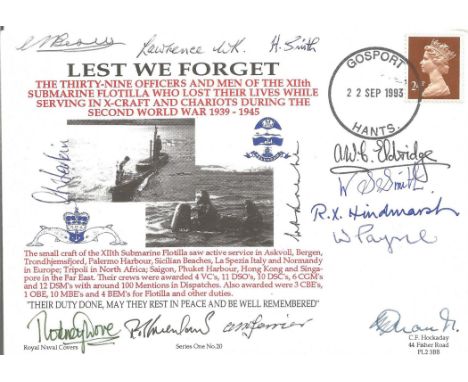 Lawrence W.K. H. Smith
LEST WE FORGET
THE THIRTY-NINE OFFICERS AND MEN OF THE XIIth
SUBMARINE FLOTILLA WHO LOST THEIR LIVES WHILE
SERVING IN X-CRAFT AND CHARIOTS DURING THE
SECOND WORLD WAR 1939 - 1945
GOSPORT
22 SEP 1993
HANTS.
A.W.C. Eldridge
W S Smith
R.X. Hindmarsh
W Payne
The small craft of the XIIth Submarine Flotilla saw active service in Askvoll, Bergen,
Trondhjemsfjord, Palermo Harbour, Sicilian Beaches, La Spezia Italy and Normandy
in Europe; Tripoli in North Africa; Saigon, Phuket Harbour, Hong Kong and Singa-
pore in the Far East. Their crews were awarded 4 VC's, 11 DSO's, 10 DSC's, 6 CGM's
and 12 DSM's with around 100 Mentions in Dispatches. Also awarded were 3 CBE's,
1 OBE, 10 MBE's and 4 BEM's for Flotilla and other duties.
"THEIR DUTY DONE, MAY THEY REST IN PEACE AND BE WELL REMEMBERED"
Rodney Dove
Royal Naval Covers
Series One No.20
C.F. Hockaday
44 Fisher Road
PL2 3BB